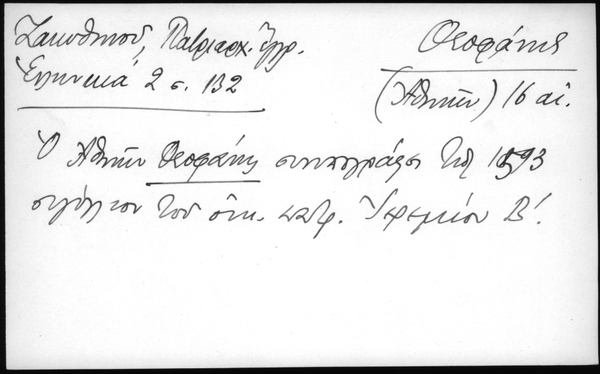 Ζακυθηνοῦ, Πατριαρχ. ἔγγρ.
Ἑλληνικά 2 σ. 132
Θεοφάνης
(Ἀθηνῶν) 16 αἰ.
Ὁ Ἀθηνῶν Θεοφάνης συνυπογράφει τῷ 1593
σιγίλλιον τοῦ οἰκ. πατρ. Ἱερεμίου Β΄.